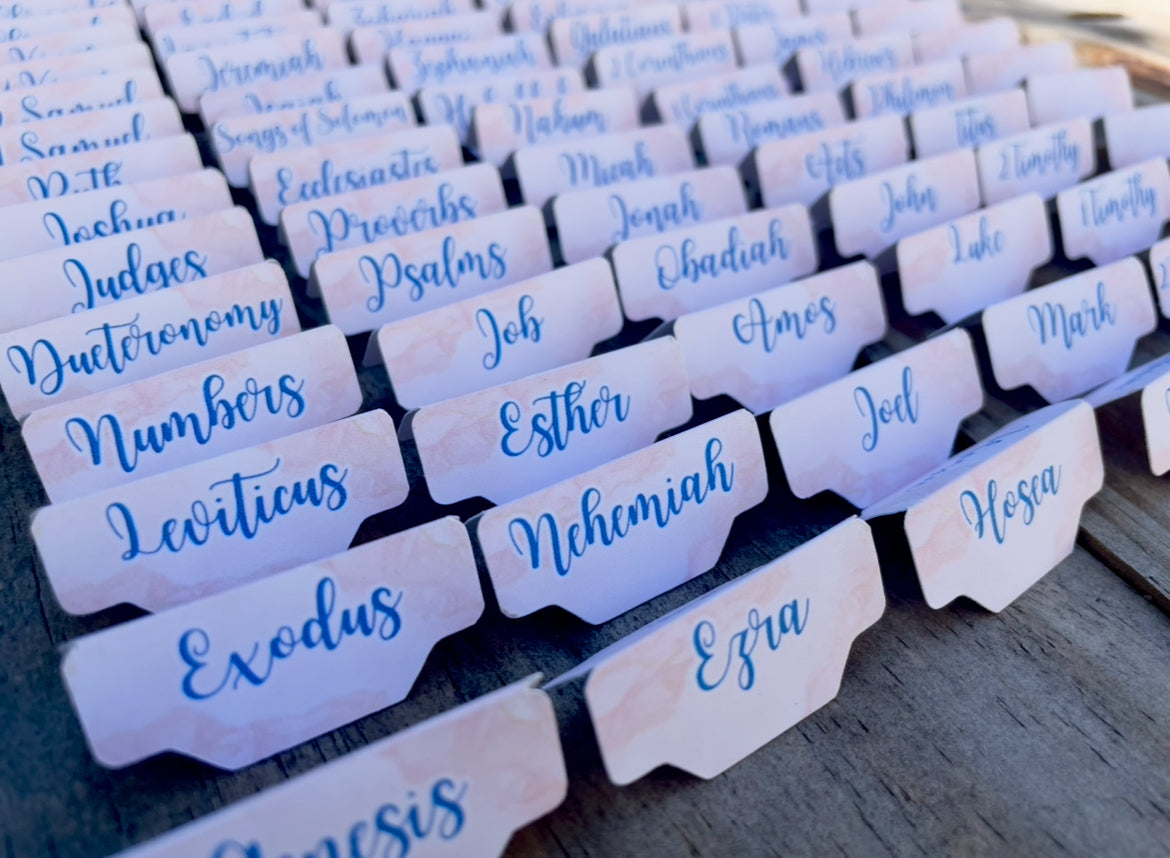 Genesis
Exodus
Leviticus
Numbers
Dueteronomy
Judges
Joshua
Ruth
Samuel
Samuel
Ezra
Nehemiah
Esther
Job
Psalms
Proverbs
Ecclesiastes
Songs of Solomon
Isaiah
Jeremiah
Hosea
Joel
Amos
Obadiah
Jonah
Micah
Nahum
Zephaniah
Mark
Luke
John
Acts
Romans
Corinthians
2 Corinthians
Galatians
1 Timothy
2 Timothy
Titus
Philemon
Hebrews
James